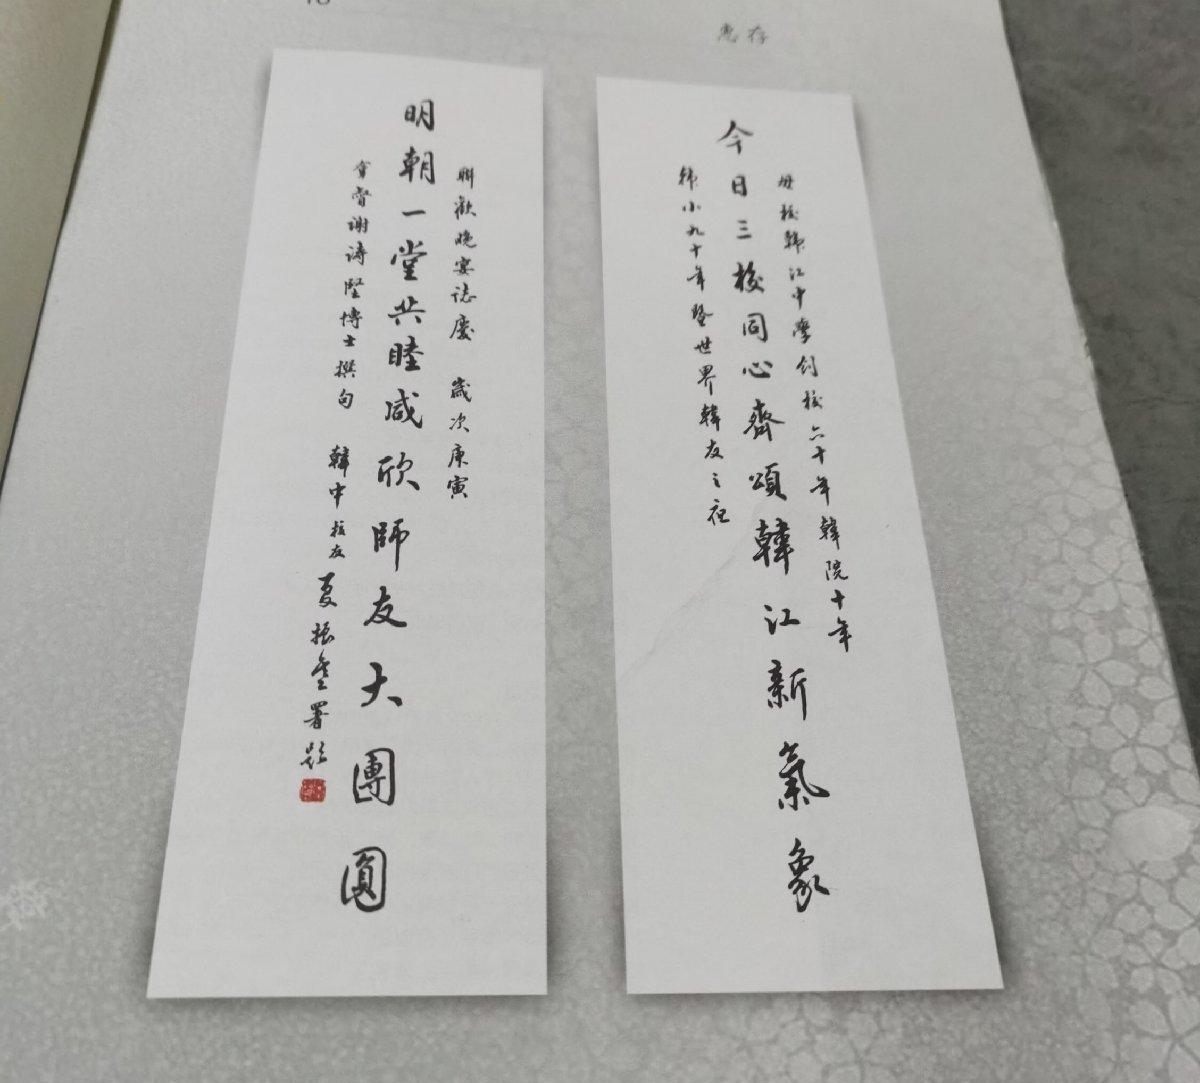 惠存
母校韩江中學創校六十年韓院十年
今日三校同心齊頌韓江新氣象
韩小九十年暨世界韓友之夜
聯歡晚宴誌慶 歲次庚寅
明朝一堂共睦咸欣師友大團圓
會督谢涛堅博士撰句 韓中校友夏振基署題